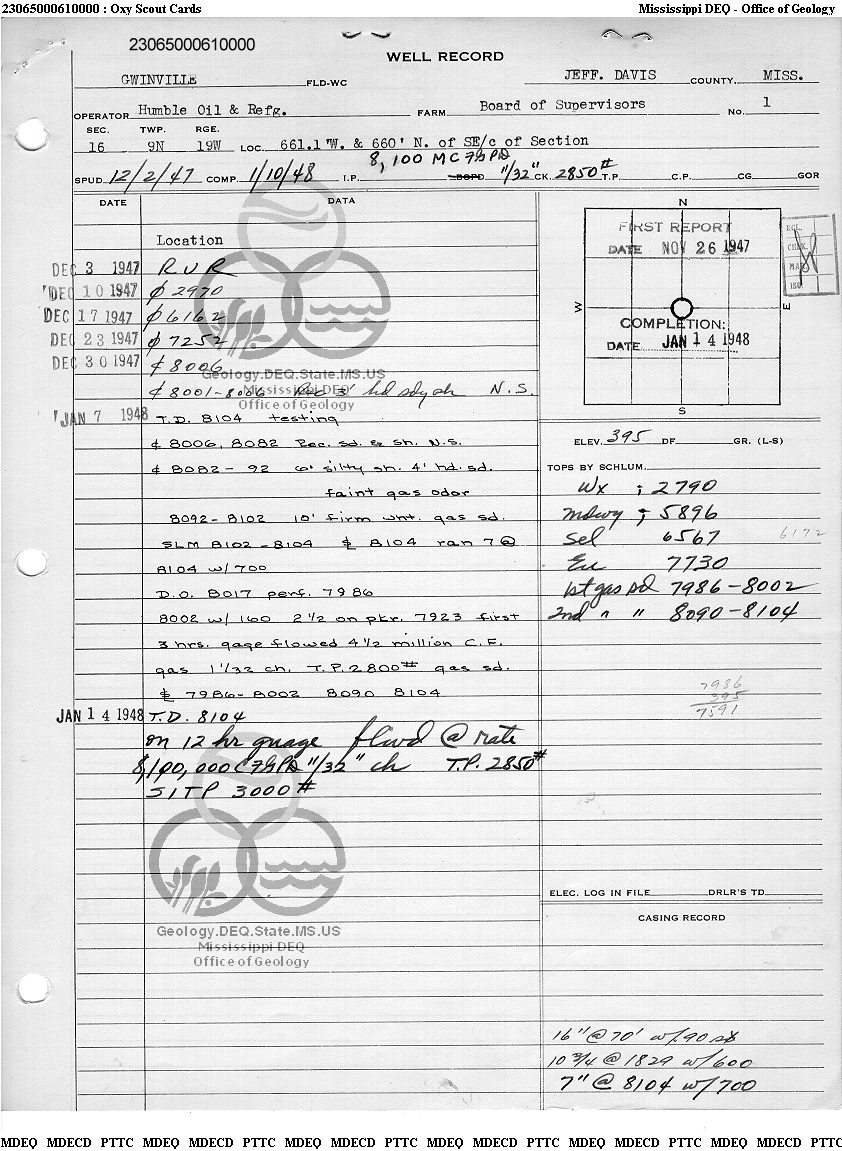 23065000610000 : Oxy Scout Cards
Mississippi DEQ - Office of Geology
23065000610000
WELL RECORD
GWINVILLE FLD-WC JEFF. DAVIS COUNTY, MISS.
OPERATOR Humble Oil & Refg. FARM Board of Supervisors No. 1
SEC. TWP. RGE.
16 9N 19W LOC. 661.1 'W. & 660' N. of SE/c of Section
8,100 MCFGPD
SPUD 12/2/47 COMP. 1/10/48 I.P. BOPD 11/32" CK. 2850# T.P. C.P. CG GOR
DATE DATA
Location
DEC 3 1947 RUR
DEC 10 1947 ₵ 2970
DEC 17 1947 ₵ 6162
DEC 23 1947 ₵ 7252
DEC 30 1947 ₵ 8006
₵ 8001-8006 Rec 3' hd sdy sh N.S.
JAN 7 1948 T.D. 8104 testing
₵ 8006, 8082 Rec. sd. & sh. N.S.
₵ 8082-92 6' silty sh. 4' hd. sd.
faint gas odor
8092-8102 10' firm wht. gas sd.
SLM 8102-8104 ₵ 8104 ran 7 @
8104 w/700
D.O. 8017 perf. 7986
8002 w/ 160 2 1/2 on pkr. 7923 first
3 hrs. gage flowed 4 1/2 million C.F.
gas 11/32 ch. T.P. 2800# gas sd.
₵ 7986-8002 8090 8104
JAN 14 1948 T.D. 8104
on 12 hr guage flwd @ rate
8,100,000 CFGPD 11/32" ch T.P. 2850#
SITP 3000#
Geology.DEQ.State.MS.US
Mississippi DEQ
Office of Geology
Geology.DEQ.State.MS.US
Mississippi DEQ
Office of Geology
N
W
E
S
FIRST REPORT
DATE NOV 26 1947
COMPLETION:
DATE JAN 14 1948
REL.
CHK.
MAP
ISO.
ELEV. 395 DF GR. (L-S)
TOPS BY SCHLUM.
Wx ; 2790
mdwy ; 5896
Sel 6567 6172
Eu 7730
1st gas sd 7986-8002
2nd " " 8090-8104
7986
395
7591
ELEC. LOG IN FILE DRLR'S TD
CASING RECORD
16" @ 70' w/.90 sx
10 3/4 @ 1829 w/600
7" @ 8104 w/700
MDEQ MDECD PTTC MDEQ MDECD PTTC MDEQ MDECD PTTC MDEQ MDECD PTTC MDEQ MDECD PTTC MDEQ MDECD PTTC